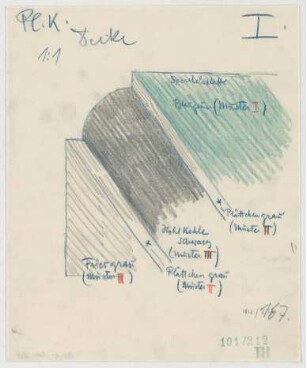 Pl. K.
Decke
1:1
I.
Blaugrün (Muster I)
Plättchen grau
(Muster II)
Hohlkehle
schwarz
(Muster III)
Fries grau
(Muster II)
Plättchen grau
(Muster II)
167.
101/212
III